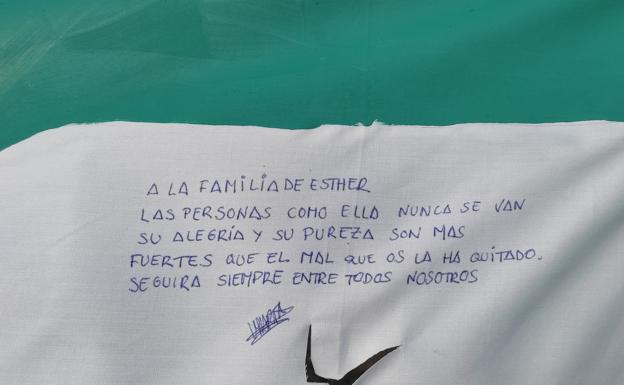 A LA FAMILIA DE ESTHER
LAS PERSONAS COMO ELLA NUNCA SE VAN
SU ALEGRÍA Y SU PUREZA SON MAS
FUERTES QUE EL MAL QUE OS LA HA QUITADO.
SEGUIRA SIEMPRE ENTRE TODOS NOSOTROS